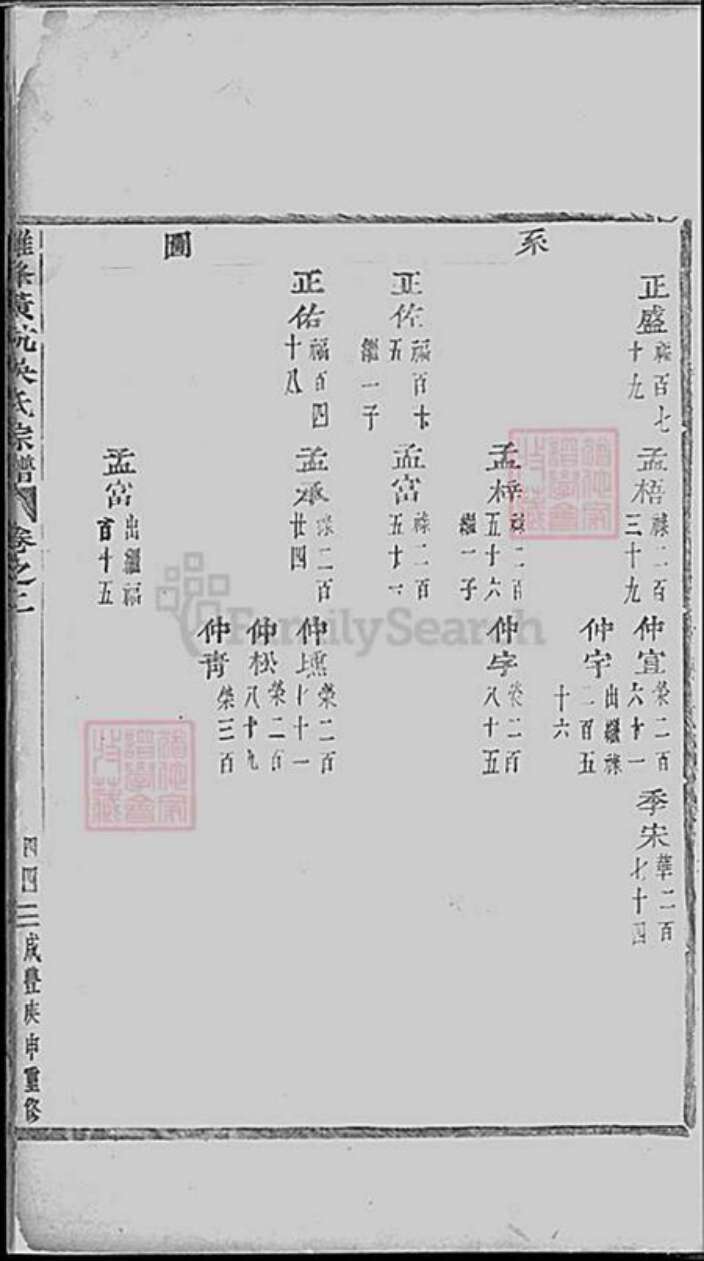 系
圖
正盛 福百七十九
孟梧 祿二百三十九
仲宜 榮二百六十一
季宋 華二百七十四
仲字 出繼祿二百五十六
孟梓 祿二百五十六 繼一子
仲字 榮二百八十五
正佐 福百十五 繼一子
孟富 祿二百五十一
正佑 福百四十八
孟承 祿二百廿四
仲 榮二百七十一
仲松 榮二百八十九
仲靑 榮三百
孟富 出繼福百十五
黃 吳氏宗譜 卷之二
四 咸豐庚申重修
FamilySearch